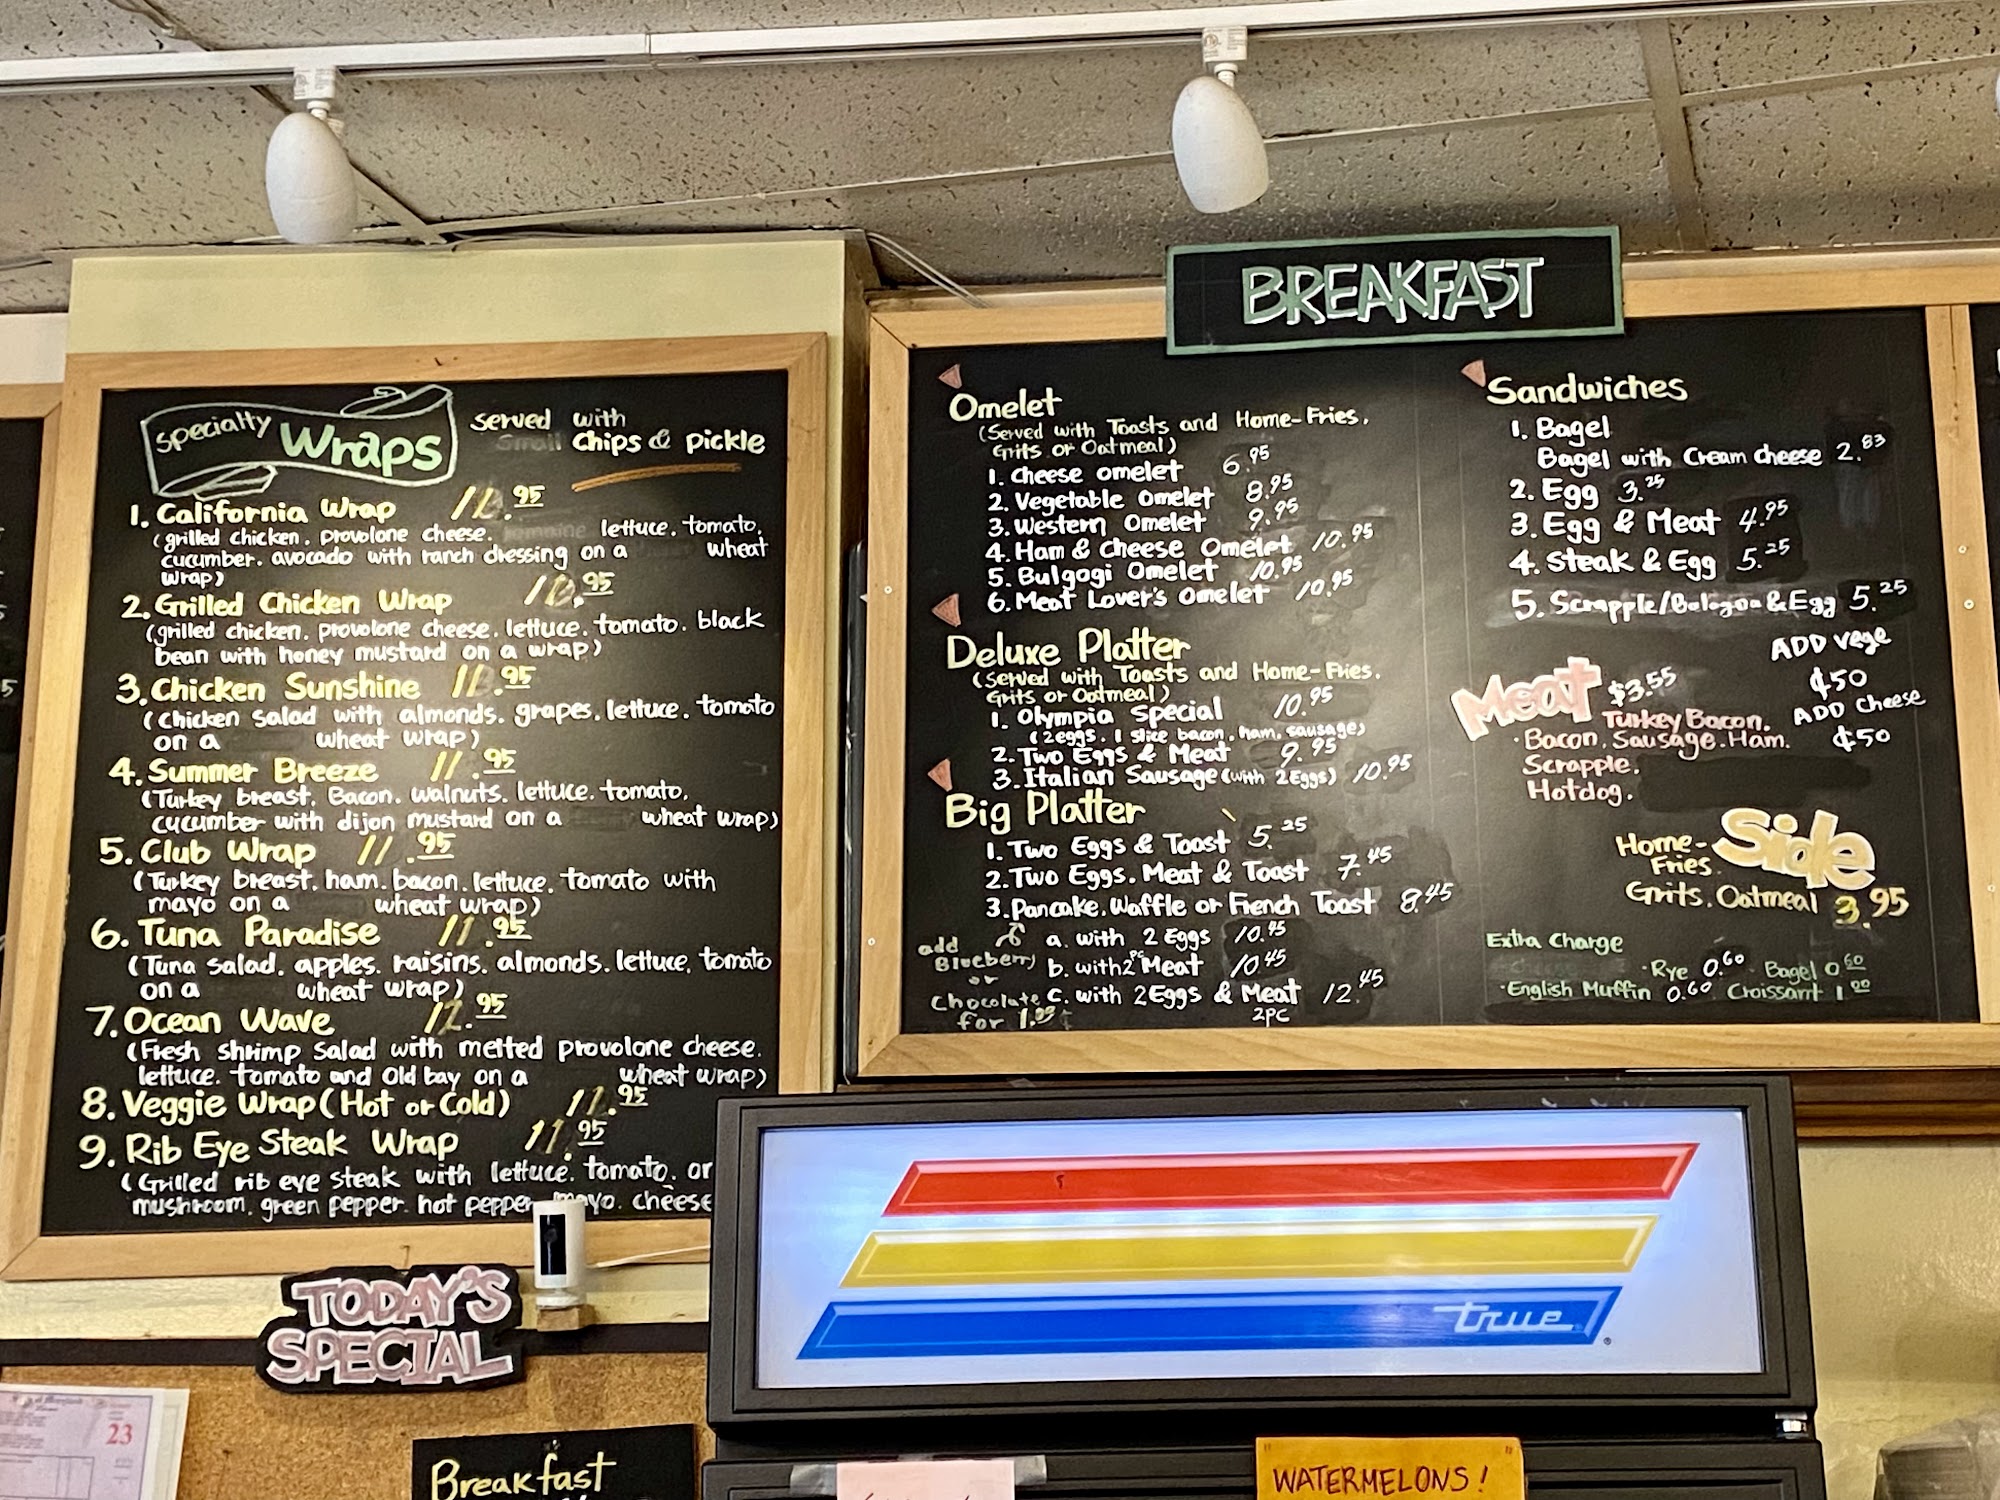 Specialty Wraps
served with
Small Chips & Pickle
1. California Wrap 11.95
(grilled chicken. provolone cheese. lettuce. tomato.
cucumber. avocado with ranch dressing on a wheat
wrap)
2. Grilled Chicken Wrap .95
(grilled chicken. provolone cheese. lettuce. tomato. black
bean with honey mustard on a wrap)
3. Chicken Sunshine 11.95
(chicken salad with almonds. grapes. lettuce. tomato
on a wheat wrap)
4. Summer Breeze 11.95
(Turkey breast. Bacon. walnuts. lettuce. tomato.
cucumber with dijon mustard on a wheat wrap)
5. Club Wrap 11.95
(Turkey breast. ham. bacon. lettuce. tomato with
mayo on a wheat wrap)
6. Tuna Paradise 11.95
(Tuna salad. apples. raisins. almonds. lettuce. tomato
on a wheat wrap)
7. Ocean Wave 12.95
(Fresh shrimp salad with melted provolone cheese.
lettuce. tomato and Old bay on a wheat wrap)
8. Veggie Wrap (Hot or Cold) 11.95
9. Rib Eye Steak Wrap 11.95
(Grilled rib eye steak with lettuce. tomato. or
mushroom. green pepper. hot pepper mayo. cheese
BREAKFAST
Omelet
(Served with Toasts and Home-Fries.
Grits or Oatmeal)
1. Cheese omelet 6.95
2. Vegetable Omelet 8.95
3. Western Omelet 9.95
4. Ham & Cheese Omelet 10.95
5. Bulgogi Omelet 10.95
6. Meat Lover's Omelet 10.95
Deluxe Platter
(Served with Toasts and Home-Fries.
Grits or Oatmeal)
1. Olympia Special 10.95
(2eggs. 1 slice bacon. ham. sausage)
2. Two Eggs & Meat 9.95
3. Italian Sausage (with 2 Eggs) 10.95
Big Platter
1. Two Eggs & Toast 5.25
2. Two Eggs. Meat & Toast 7.45
3. Pancake. Waffle or French Toast 8.45
a. with 2 Eggs 10.45
b. with 2pc Meat 10.45
c. with 2 Eggs & Meat 12.45
2PC
add
Blueberry
or
Chocolate
for
Sandwiches
1. Bagel
Bagel with Cream cheese 2.83
2. Egg 3.25
3. Egg & Meat 4.95
4. Steak & Egg 5.25
5. Scrapple/Bologna & Egg 5.25
ADD vege
¢50
ADD Cheese
¢50
Meat $3.55
Turkey Bacon.
Bacon. Sausage. Ham.
Scrapple.
Hotdog.
Side
Home-
Fries.
Grits. Oatmeal 3.95
Extra Charge
·Rye 0.60 Bagel 0.60
·English Muffin 0.60 Croissant 1.00
true
TODAY'S
SPECIAL
23
Breakfast
WATERMELONS!